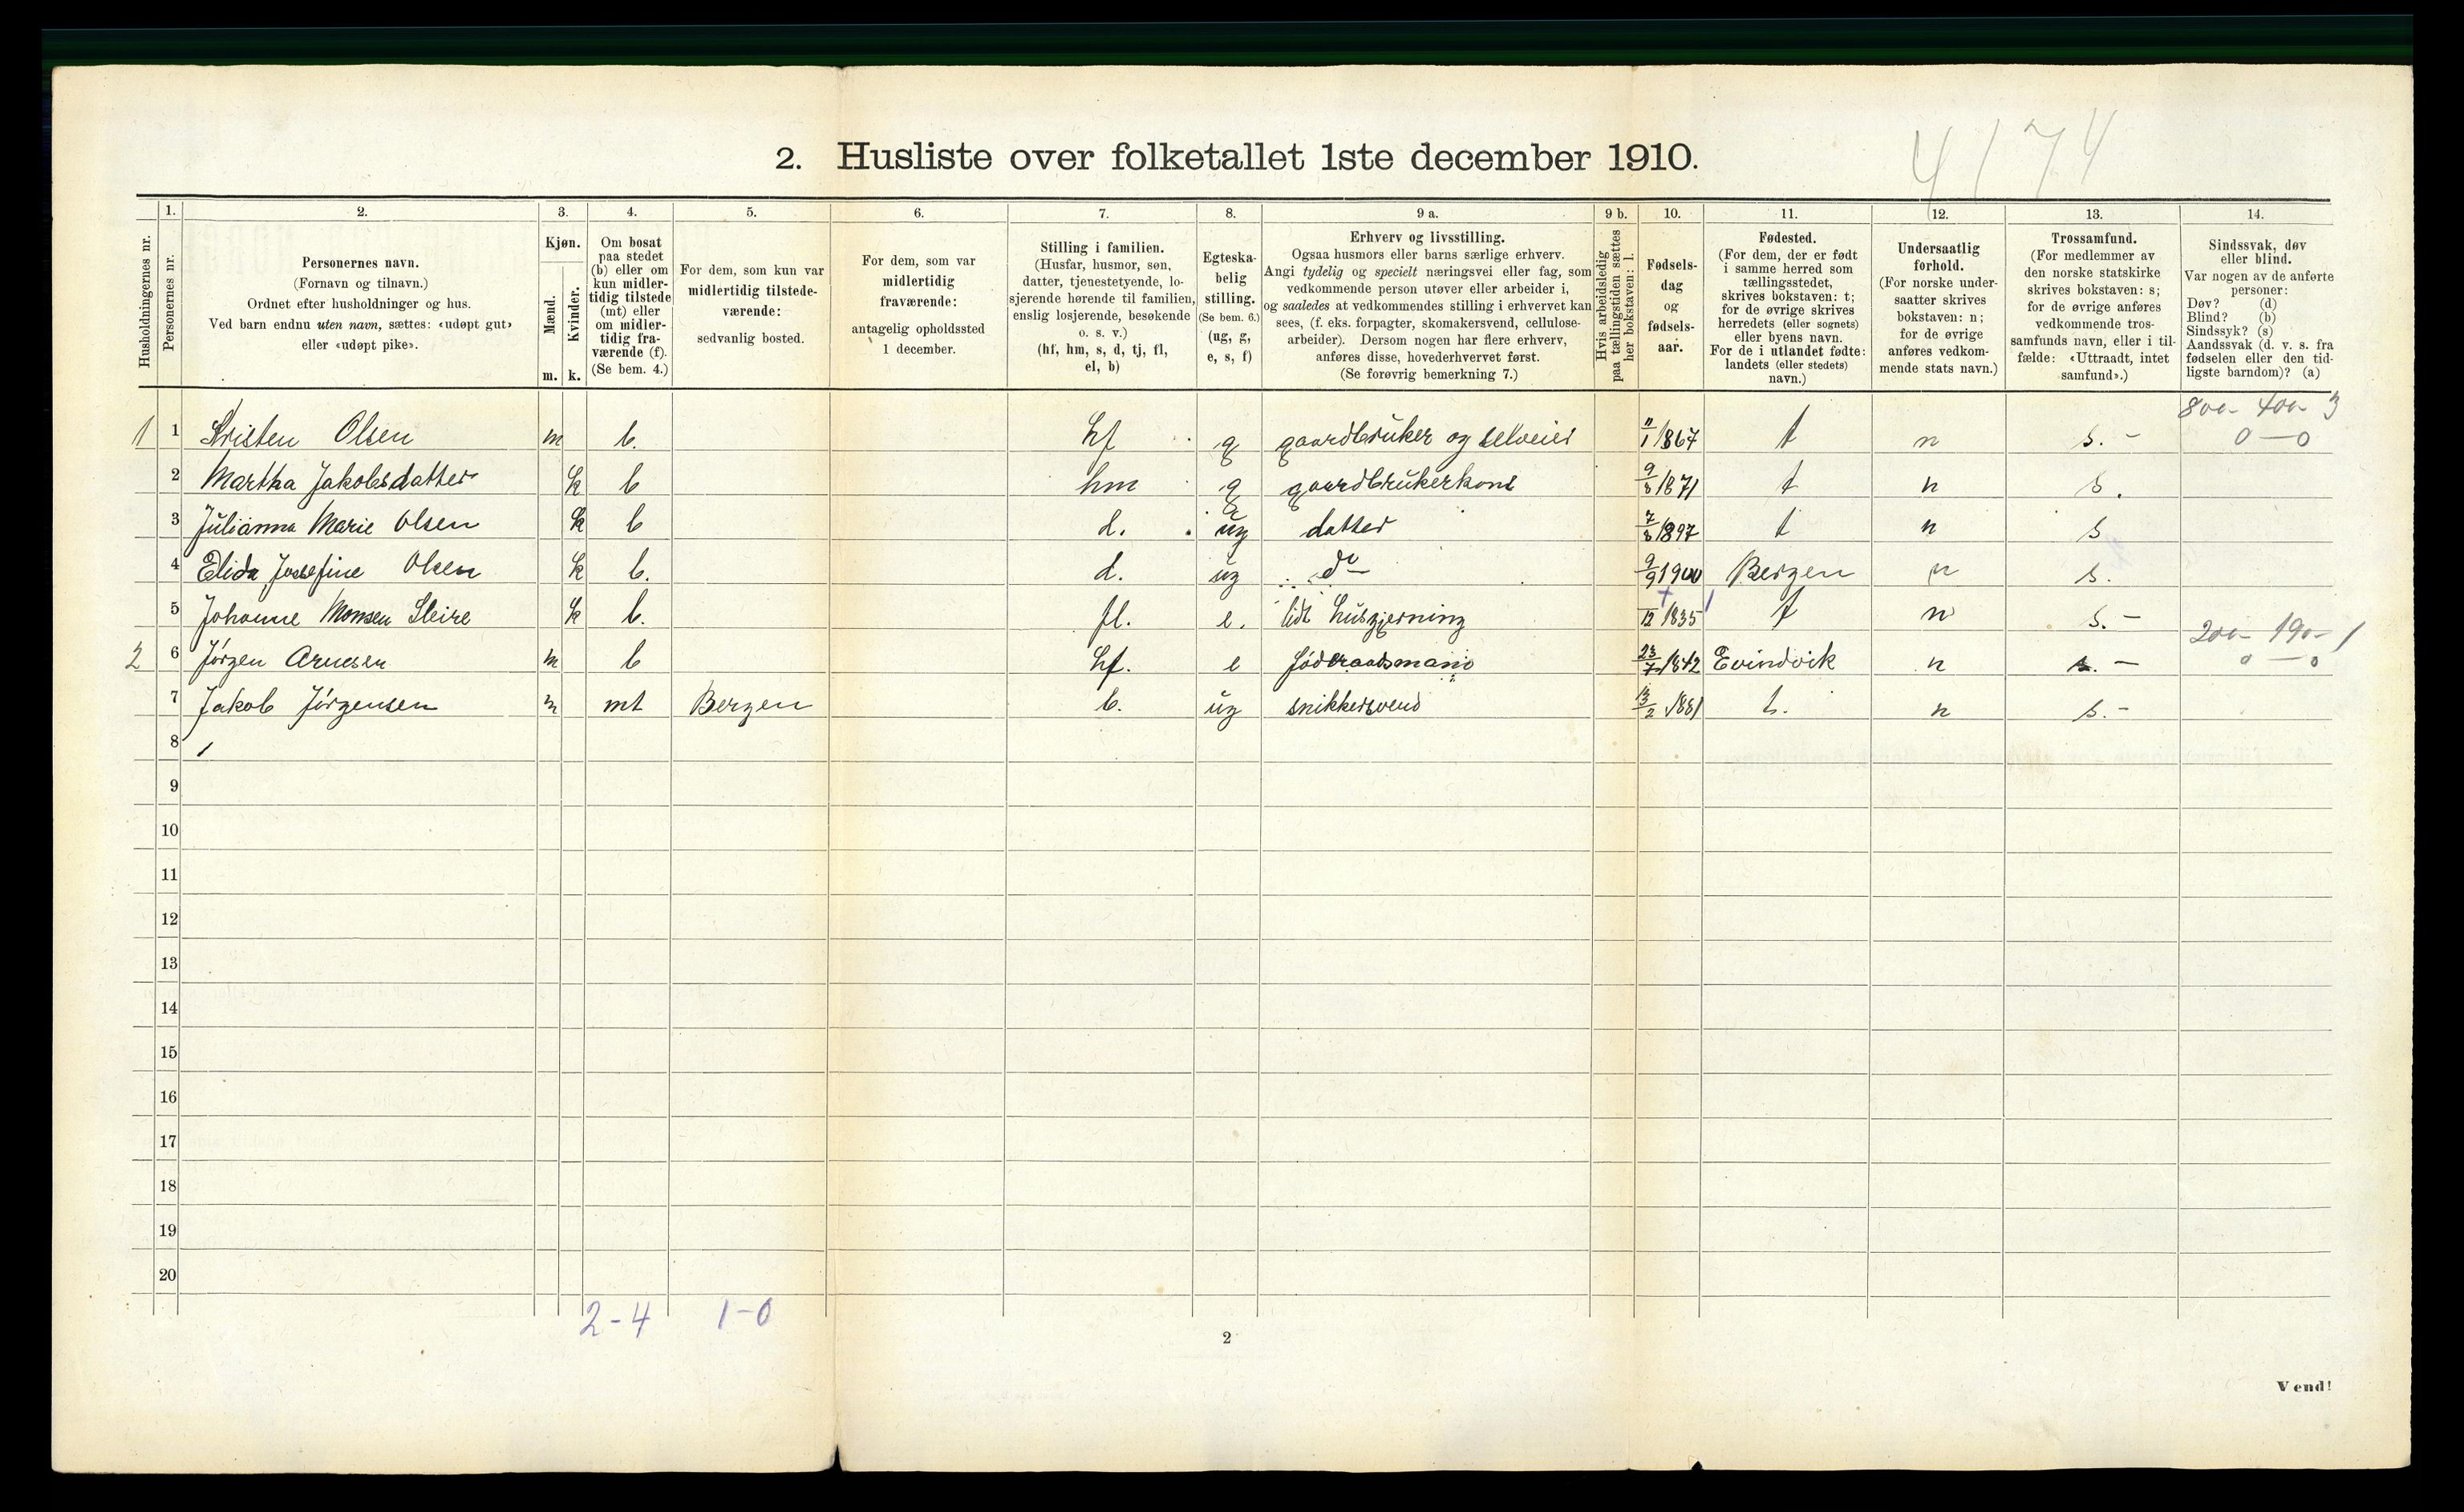 4174
2. Husliste over folketallet 1ste december 1910.
Husholdningernes nr.
1.
Personernes nr.
2.
Personernes navn.
(Fornavn og tilnavn.)
Ordnet efter husholdninger og hus.
Ved barn endnu uten navn, sættes: «udøpt gut»
eller «udøpt pike».
3.
Kjøn.
Mænd.
Kvinder.
m. k.
4.
Om bosat
paa stedet
(b) eller om
kun midler-
tidig tilstede
(mt) eller
om midler-
tidig fra-
værende (f).
(Se bem. 4.)
5.
For dem, som kun var
midlertidig tilstede-
værende:
sedvanlig bosted.
6.
For dem, som var
midlertidig
fraværende:
antagelig opholdssted
1 december.
7.
Stilling i familien.
(Husfar, husmor, søn,
datter, tjenestetyende, lo-
sjerende hørende til familien,
enslig losjerende, besøkende
o. s. v.)
(hf, hm, s, d, tj, fl,
el, b)
8.
Egteska-
belig
stilling.
(Se bem. 6.)
(ug, g,
e, s, f)
9 a.
Erhverv og livsstilling.
Ogsaa husmors eller barns særlige erhverv.
Angi tydelig og specielt næringsvei eller fag, som
vedkommende person utøver eller arbeider i,
og saaledes at vedkommendes stilling i erhvervet kan
sees, (f. eks. forpagter, skomakersvend, cellulose-
arbeider). Dersom nogen har flere erhverv,
anføres disse, hovederhvervet først.
(Se forøvrig bemerkning 7.)
9 b.
Hvis arbeidsledig
paa tællingstiden sættes
her bokstaven: l.
10.
Fødsels-
dag
og
fødsels-
aar.
11.
Fødested.
(For dem, der er født
i samme herred som
tællingsstedet,
skrives bokstaven: t;
for de øvrige skrives
herredets (eller sognets)
eller byens navn.
For de i utlandet fødte:
landets (eller stedets)
navn.)
12.
Undersaatlig
forhold.
(For norske under-
saatter skrives
bokstaven: n;
for de øvrige
anføres vedkom-
mende stats navn.)
13.
Trossamfund.
(For medlemmer av
den norske statskirke
skrives bokstaven: s;
for de øvrige anføres
vedkommende tros-
samfunds navn, eller i til-
fælde: «Uttraadt, intet
samfund».)
14.
Sindssvak, døv
eller blind.
Var nogen av de anførte
personer:
Døv? (d)
Blind? (b)
Sindssyk? (s)
Aandssvak (d. v. s. fra
fødselen eller den tid-
ligste barndom)? (a)
800- 400- 3
1 1 Kristen Olsen m b. hf g gaardbruker og selveier 11/1 1867 t n s. - 0 - 0
2 Martha Jakobsdatter k b hm g gaardbrukerkone 9/8 1871 t n s.
3 Julianna Marie Olsen k b d. ug datter 7/8 1897 t n s
4 Elida Josefine Olsen k b. d. ug do 9/9 1900 Bergen n s.
5 Johanne Monsen Sleire k b. fl. e. lidt husgjerning /12 1835 t n s. -
200- 190- 1
2 6 Jørgen Arnesen m b hf. e føderaadsmand 23/7 1842 Evindvik n s. - 0 - 0
7 Jakob Jørgensen m mt Bergen b. ug snikkersvend 13/2 1881 t. n s. -
8
9
10
11
12
13
14
15
16
17
18
19
20
2-4 1-0
2
Vend!